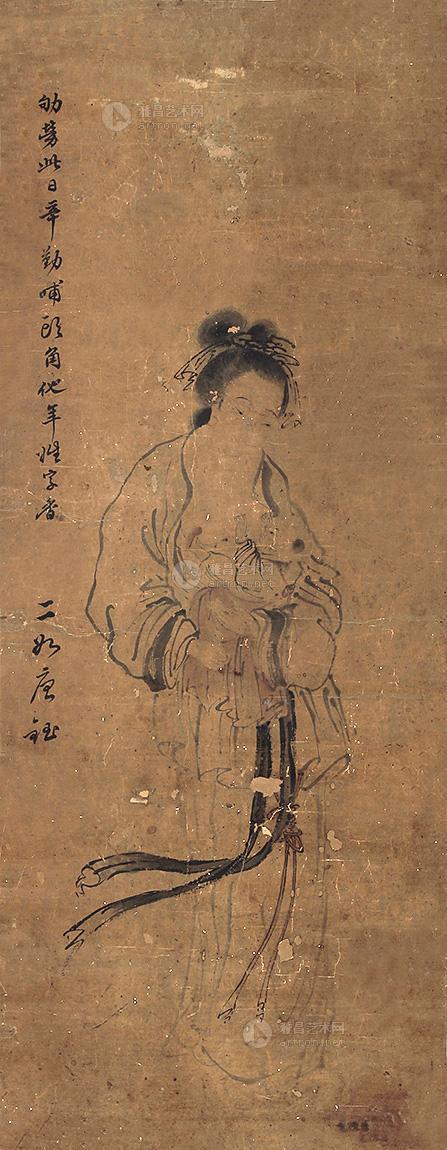 劬劳此日辛勤哺
头角他年姓字香
二如唐鉽
雅昌艺术网
artron.net
雅昌艺术网
artron.net
雅昌艺术网
artron.net